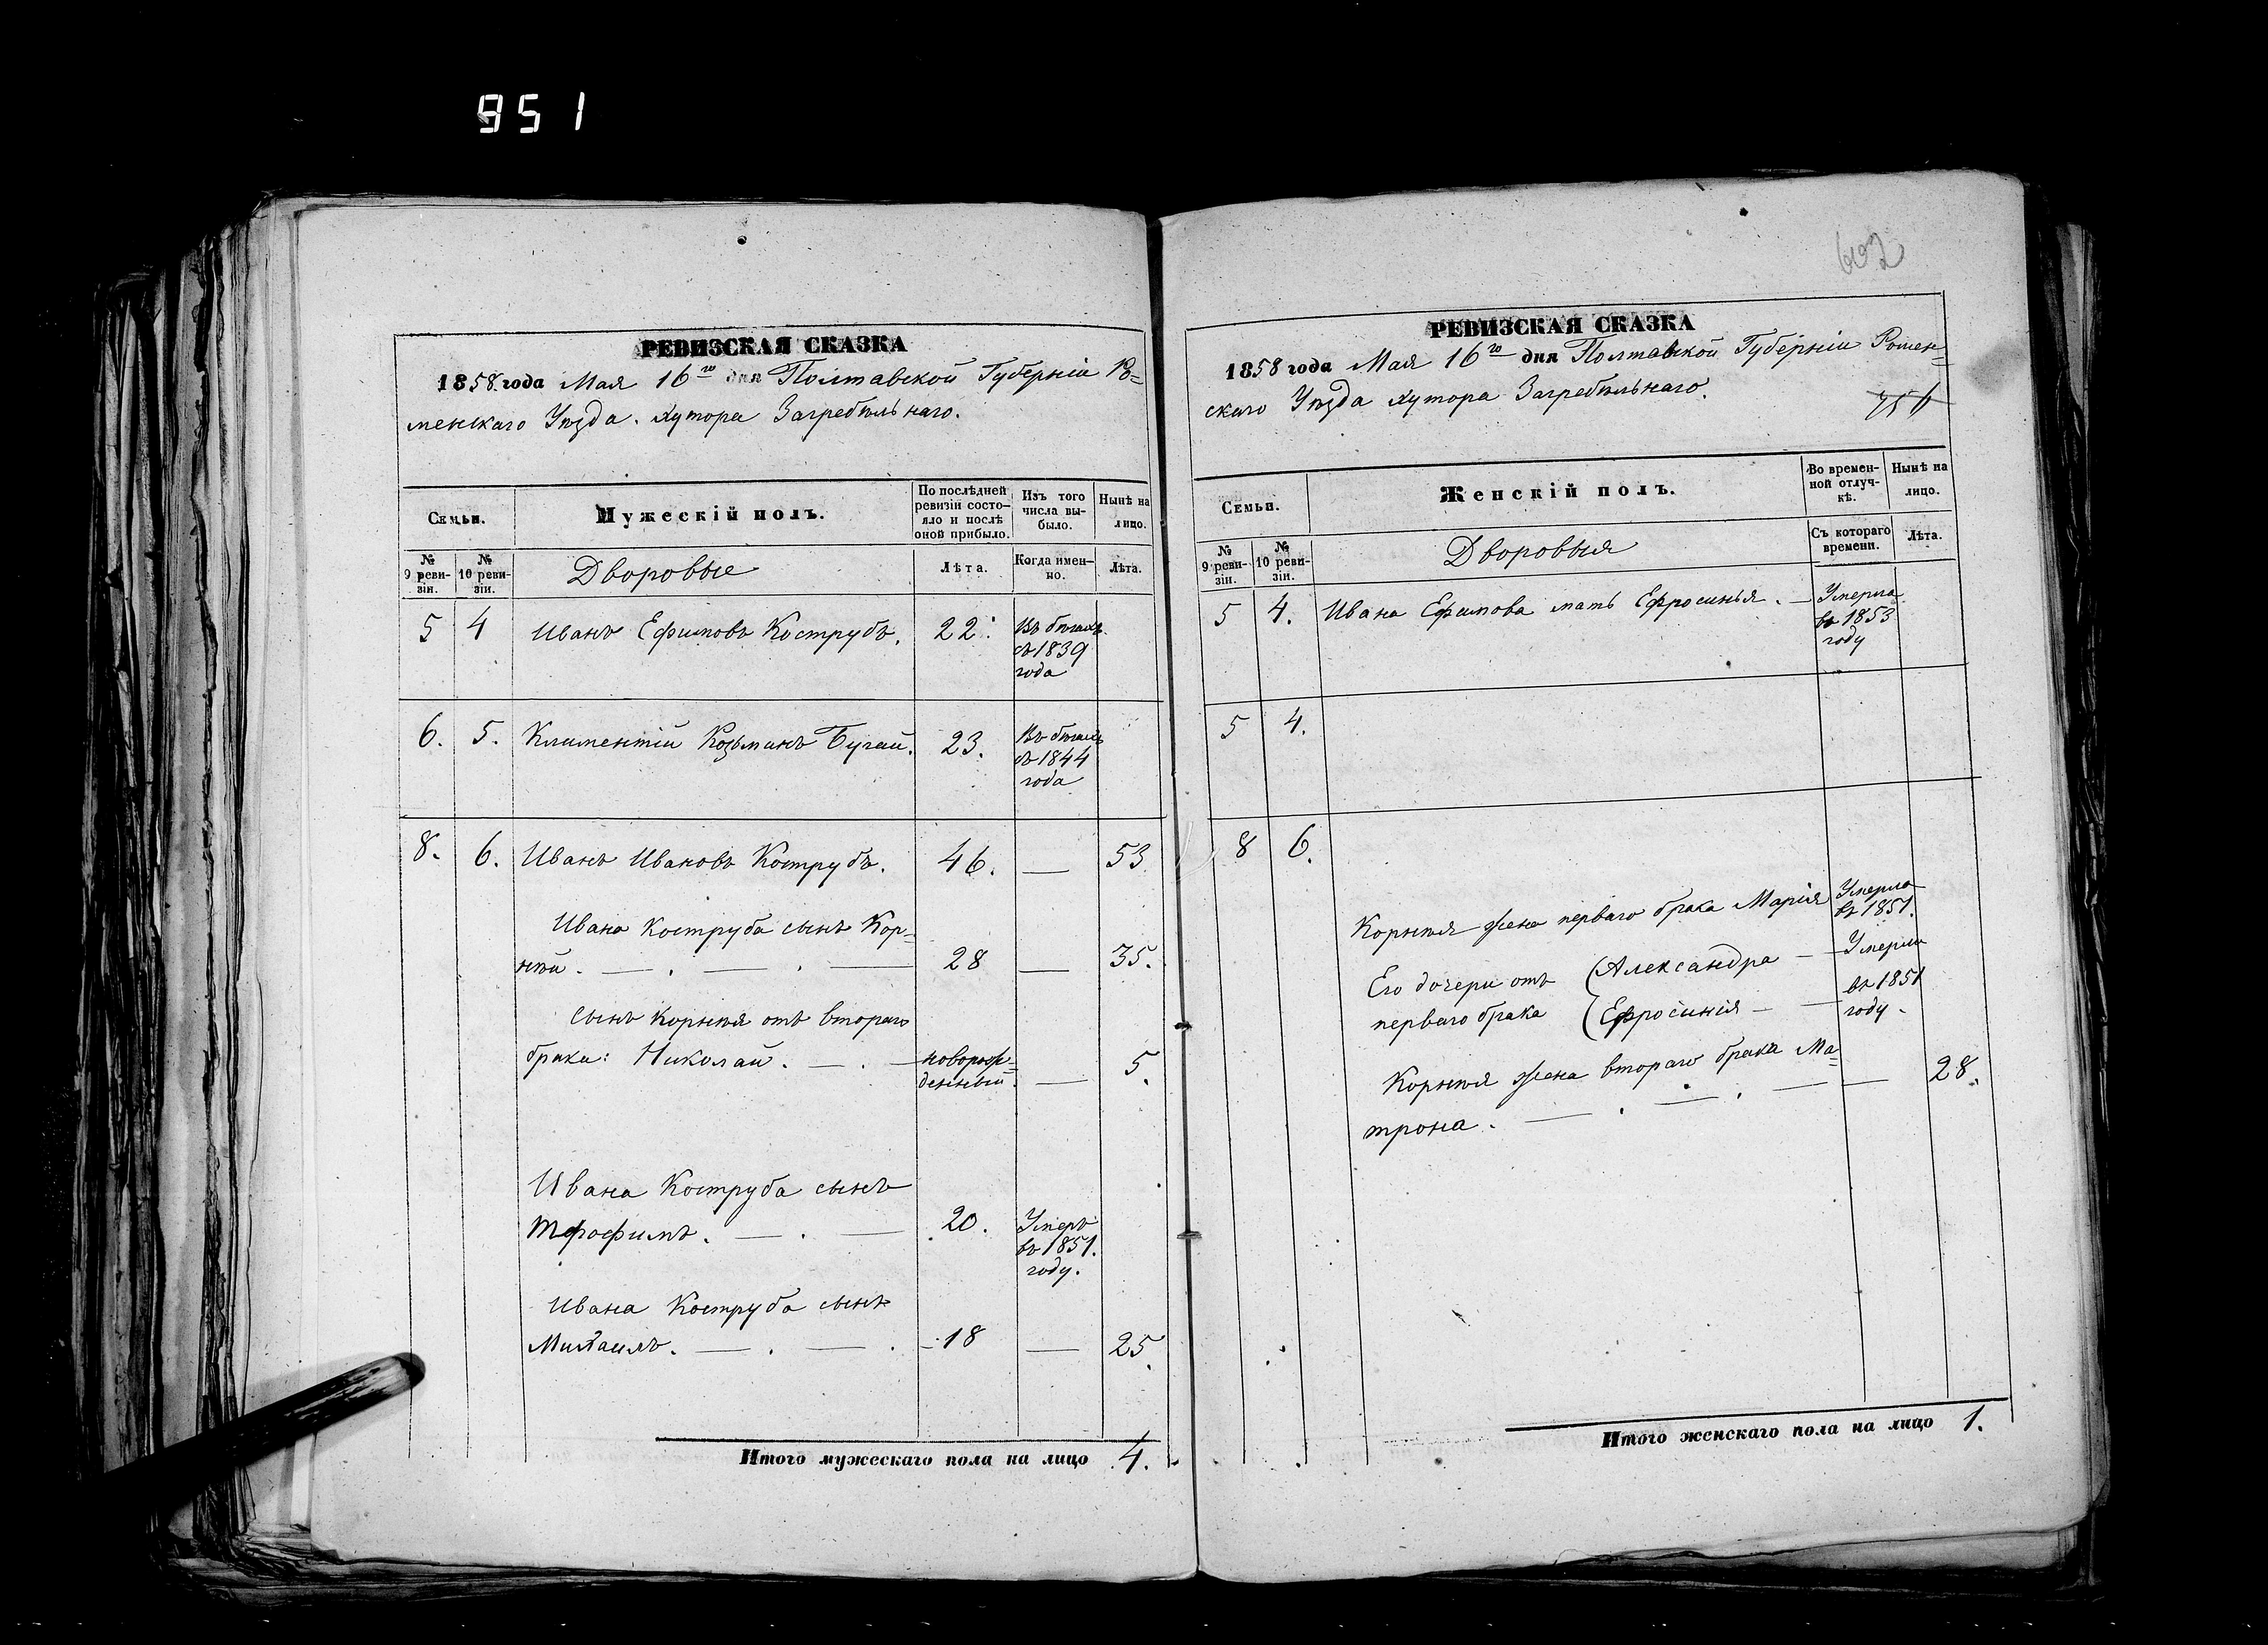 951
РЕВИЗСКАЯ СКАЗКА
1858 года Мая 16го дня Полтавской Губерніи Ро=
менскаго Уѣзда. хутора Загребѣльнаго.
Семьи.
Мужескій полъ.
По послѣдней
ревизіи состо-
яло и послѣ
оной прибыло.
Изъ того
числа вы-
было.
Нынѣ на
лицо.
№
9 реви-
зіи.
№
10 реви-
зіи.
Дворовые
Лѣта.
Когда имен-
но.
Лѣта.
5 4 Иванъ Ефимовъ Кострубъ. 22. Въ бѣгахъ
съ 1839
года
6. 5. Климентій Козьминъ Бугай. 23. Въ бѣгахъ
съ 1844
года
8. 6. Иванъ Ивановъ Кострубъ. 46. — 53
Ивана Коструба сынъ Кор=
нѣй. — . — . — 28 — 35.
Сынъ Корнѣя отъ втораго
брака: Николай. — . — новорож=
денный. — 5.
Ивана Коструба сынъ
Трофимъ. — . — 20. Умеръ
въ 1851.
году.
Ивана Коструба сынъ
Михаилъ. — . — . 18 — 25.
Итого мужескаго пола на лицо 4.
602
РЕВИЗСКАЯ СКАЗКА
1858 года Мая 16го дня Полтавской Губерніи Ромен=
скаго Уѣзда хутора Загребѣльнаго.
Семьи.
Женскій полъ.
Во времен-
ной отлуч-
кѣ.
Нынѣ на
лицо.
№
9 реви-
зіи.
№
10 реви-
зіи.
Дворовыя
Съ котораго
времени.
Лѣта.
5 4. Ивана Ефимова мать Ефросинья. — Умерла
въ 1853
году
5 4.
8 6.
Корнѣя жена перваго брака Марія Умерла
въ 1851.
Его дочери отъ (Александра — Умерли
перваго брака (Ефросинія — — въ 1851
году.
Корнѣя жена втораго брака Ма=
трона. — . — . — — 28.
Итого женскаго пола на лицо 1.